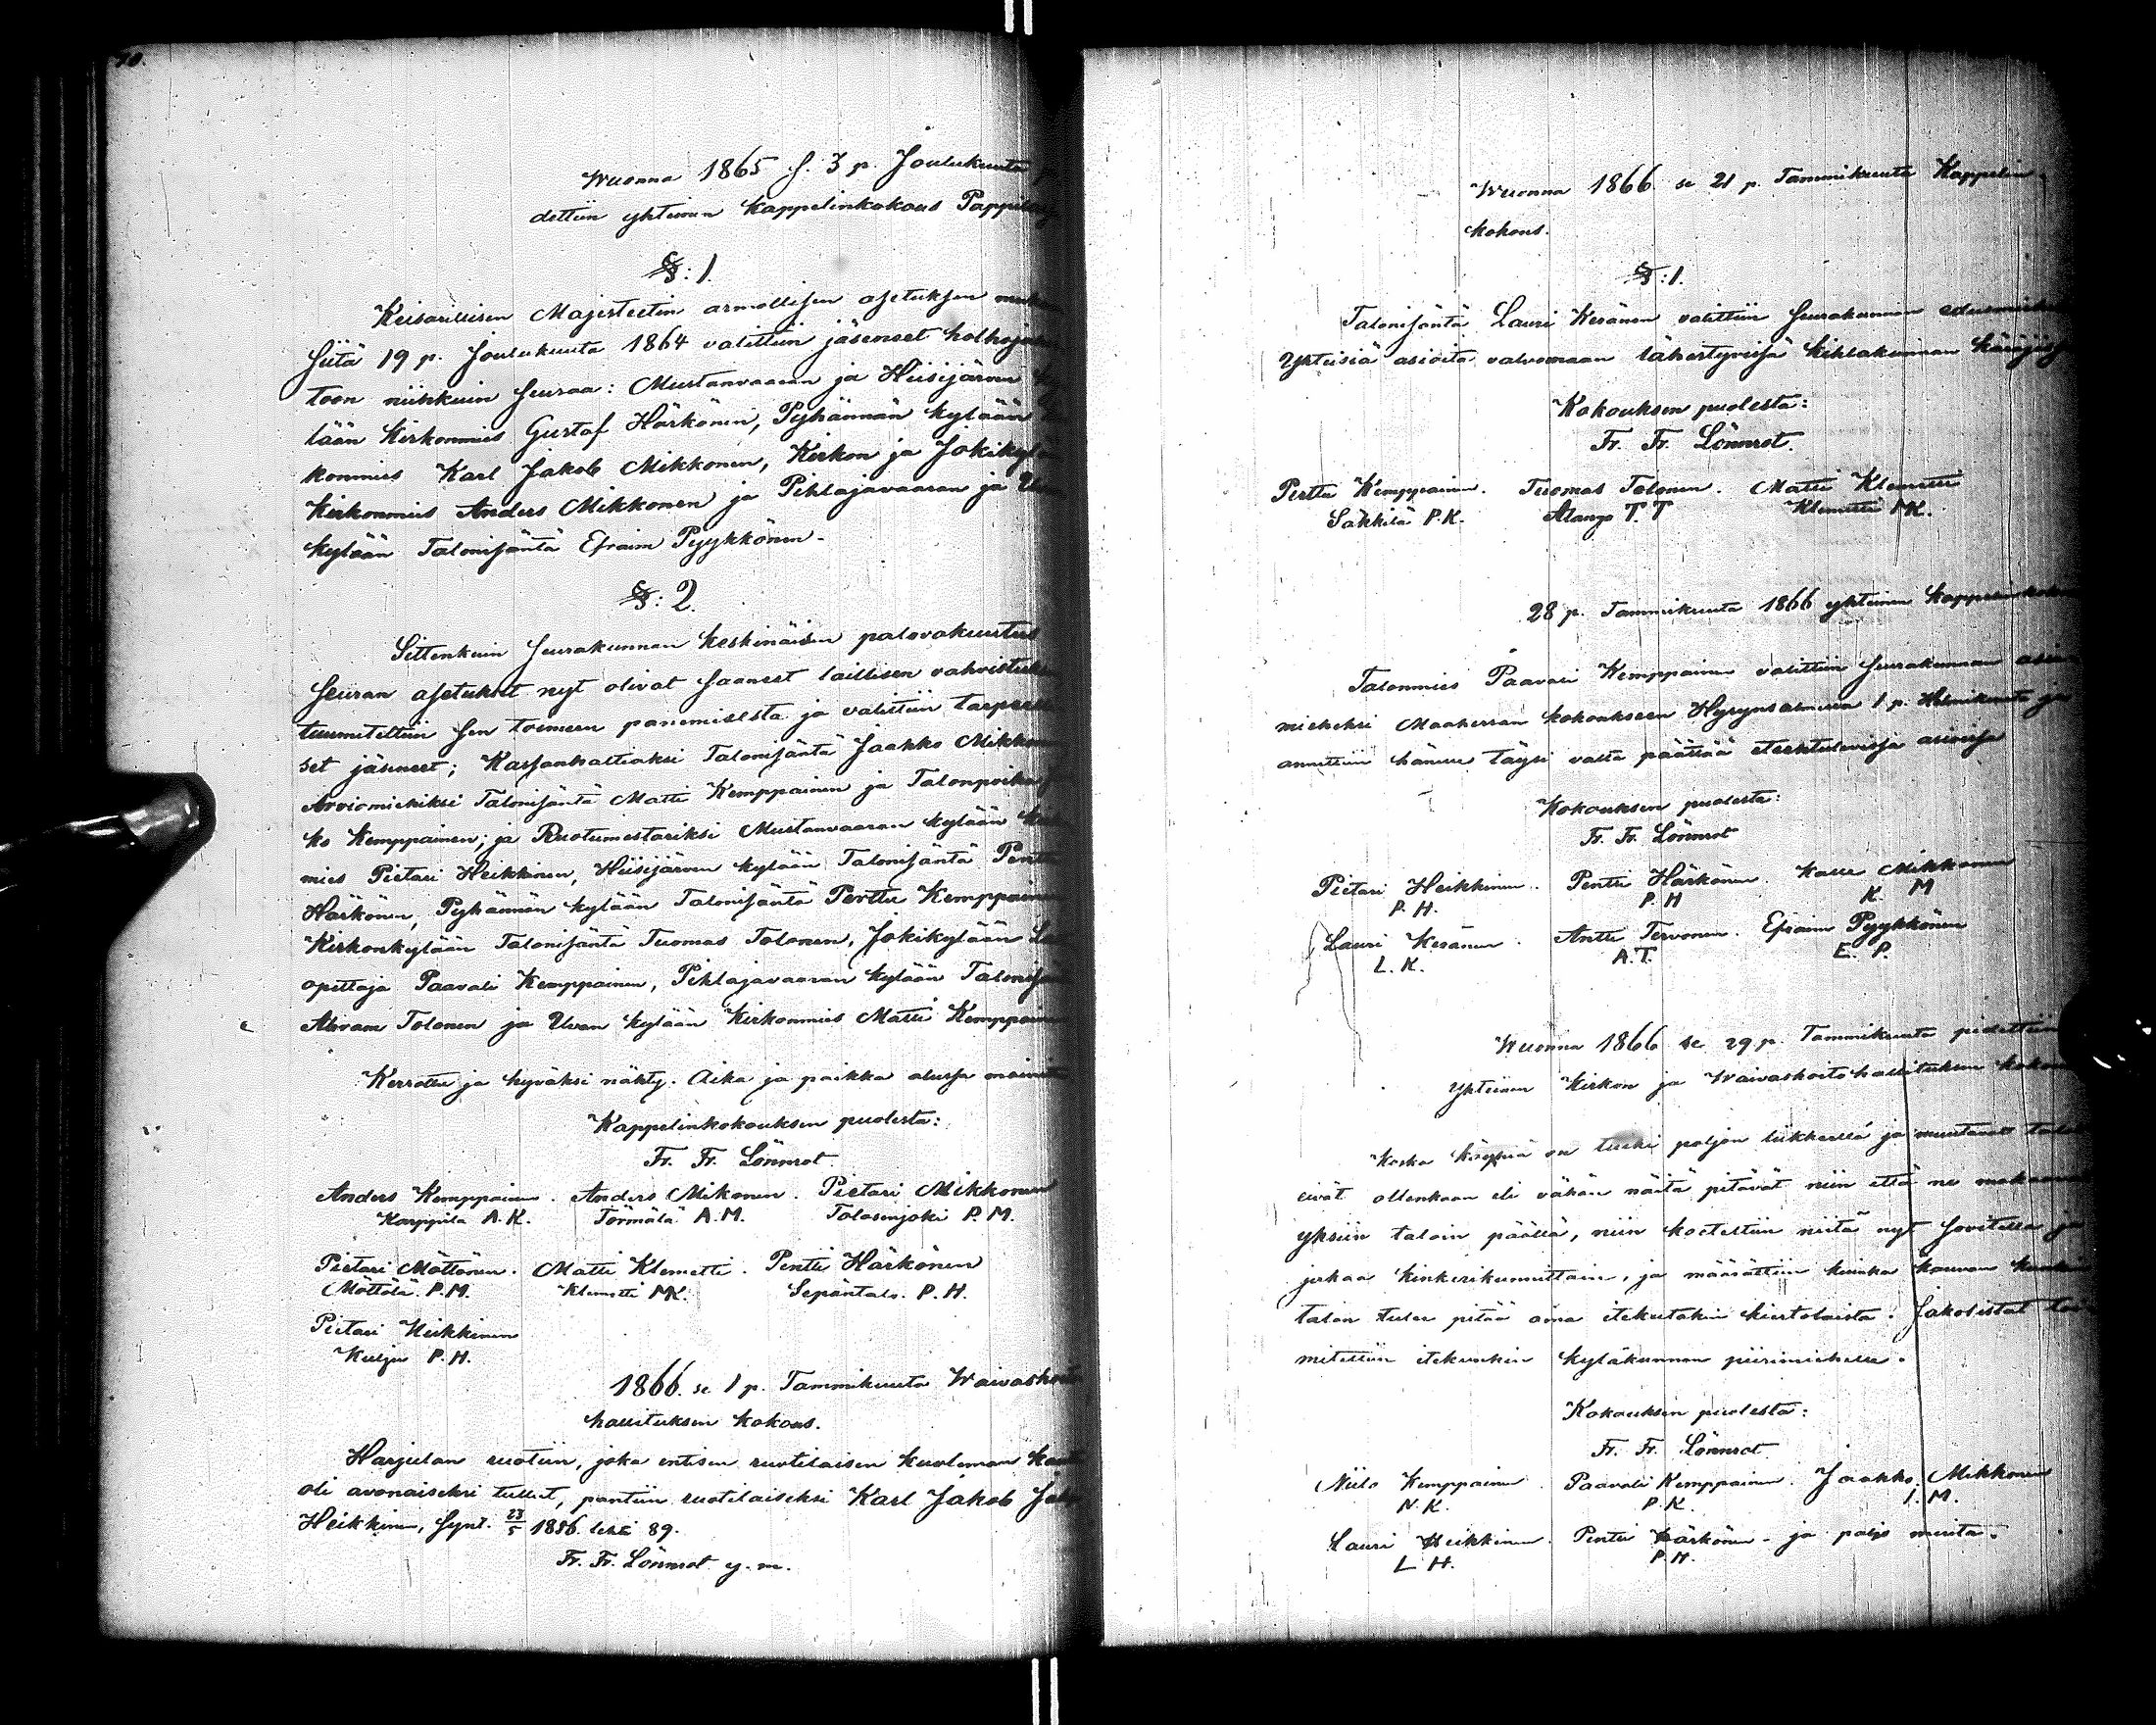 70.
Wuonna 1865 s. 3 p. Joulukuuta
dettiin yhteinen kappelinkokous
§: 1.
Keisarillisen Majesteetin armollisen asetuksen
siitä 19 p. Joulukuuta 1864 valittiin jäsenet
toon niinkuin seuraa: Mustanvaaran ja Hiisijärven
lään Kirkonmies Gustaf Härkönen, Pyhännän kylään
konmies Karl Jakob Mikkonen, Kirkon ja
Kirkonmies Anders Mikkonen ja Pihlajavaaran ja
kylään Talonisäntä Efraim Pyykkönen.
§: 2.
Sittenkuin seurakunnan keskinäisen palovakuutus
seuran asetukset nyt olivat saaneet laillisen
tuumiteltiin sen toimeen panemisesta ja valittiin
set jäsenet; Kassanhaltiaksi Talonisäntä Jaakko
Arviomiehiksi Talonisäntä Matti Kemppainen ja
ko Kemppainen; ja Ruotumestariksi Mustanvaaran kylään
mies Pietari Heikkinen, Hiisijärven kylään Talonisäntä Pentti
Härkönen, Pyhännän kylään Talonisäntä Perttu Kemppainen
Kirkonkylään Talonisäntä Tuomas Tolonen, Jokikylään
opettaja Paavali Kemppainen, Pihlajavaaran kylään
Abram Tolonen ja Uvan kylään Kirkonmies Matti Kemppainen
Kerrottu ja hyväksi nähty. Aika ja paikka alussa
Kappelinkokouksen puolesta:
Fr. Fr. Lönnrot.
Anders Kemppainen. Anders Mikonen. Pietari Mikkonen
Karppila A.K. Törmälä A.M. Tolosenjoki P.M.
Pietari Möttönen. Matti Klemetti. Pentti Härkönen
Möttölä. P.M. Klemetti MK. Sepäntalo. P.H.
Pietari Heikkinen
Kuljus P.H.
1866. se 1 p. Tammikuuta
hallituksen kokous.
Harjulan ruotiin, joka entisen ruotilaisen kuoleman
oli avonaiseksi tullut, pantiin ruotilaiseksi Karl Jakob
Heikkinen, synt. 23/5 1856 lehti 89.
Fr. Fr. Lönnrot y. m.
Wuonna 1866 se 21 p. Tammikuuta Kappelin
kokous.
§:1.
Talonisäntä Lauri Keränen valittiin seurakunnan
yhteisiä asioita valvomaan lähestyvissä kihlakunnan
Kokouksen puolesta:
Fr. Fr. Lönnrot.
Perttu Kemppainen. Tuomas Tolonen. Matti Klemetti
Säkkilä P.K. Alango T.T Klemetti MK.
28 p. Tammikuuta 1866 yhteinen
Talonmies Paavali Kemppainen valittiin seurakunnan
mieheksi Maaherran kokoukseen Hyrynsalmessa 1 p. Helmikuuta ja
annettiin hänelle täysi valta päättää eteentulevissa asioissa
Kokouksen puolesta:
Fr. Fr. Lönnrot
Pietari Heikkinen. Pentti Härkönen. Kalle Mikkonen
P.H. P.H K. M
Lauri Keränen. Antti Tervonen. Efraim Pyykkönen
L.K. A.T. E. P.
Wuonna 1866 se 29 p. Tammikuuta pidettiin
yhteinen Kirkon ja Waivashoitohallituksen
Koska köyhiä on tuiki paljon liikkeellä ja muutamat
eivät ollenkaan eli vähän näitä pitävät niin että ne
yksiin taloin päällä, niin koeteltiin niitä nyt sovitella ja
jakaa kinkerikunnittain, ja määrättiin kuinka kauvan
talon tulee pitää aina itekutakin kiertolaista. Jakolistat
mitettiin itekunkin kyläkunnan piirimiehelle.
Kokouksen puolesta:
Fr. Fr. Lönnrot
Niilo Kemppainen. Paavali Kemppainen. Jaakko Mikkonen
N.K. P.K. J.M.
Lauri Heikkinen. Pentti Härkönen. ja paljo muita.
L H. P.H.